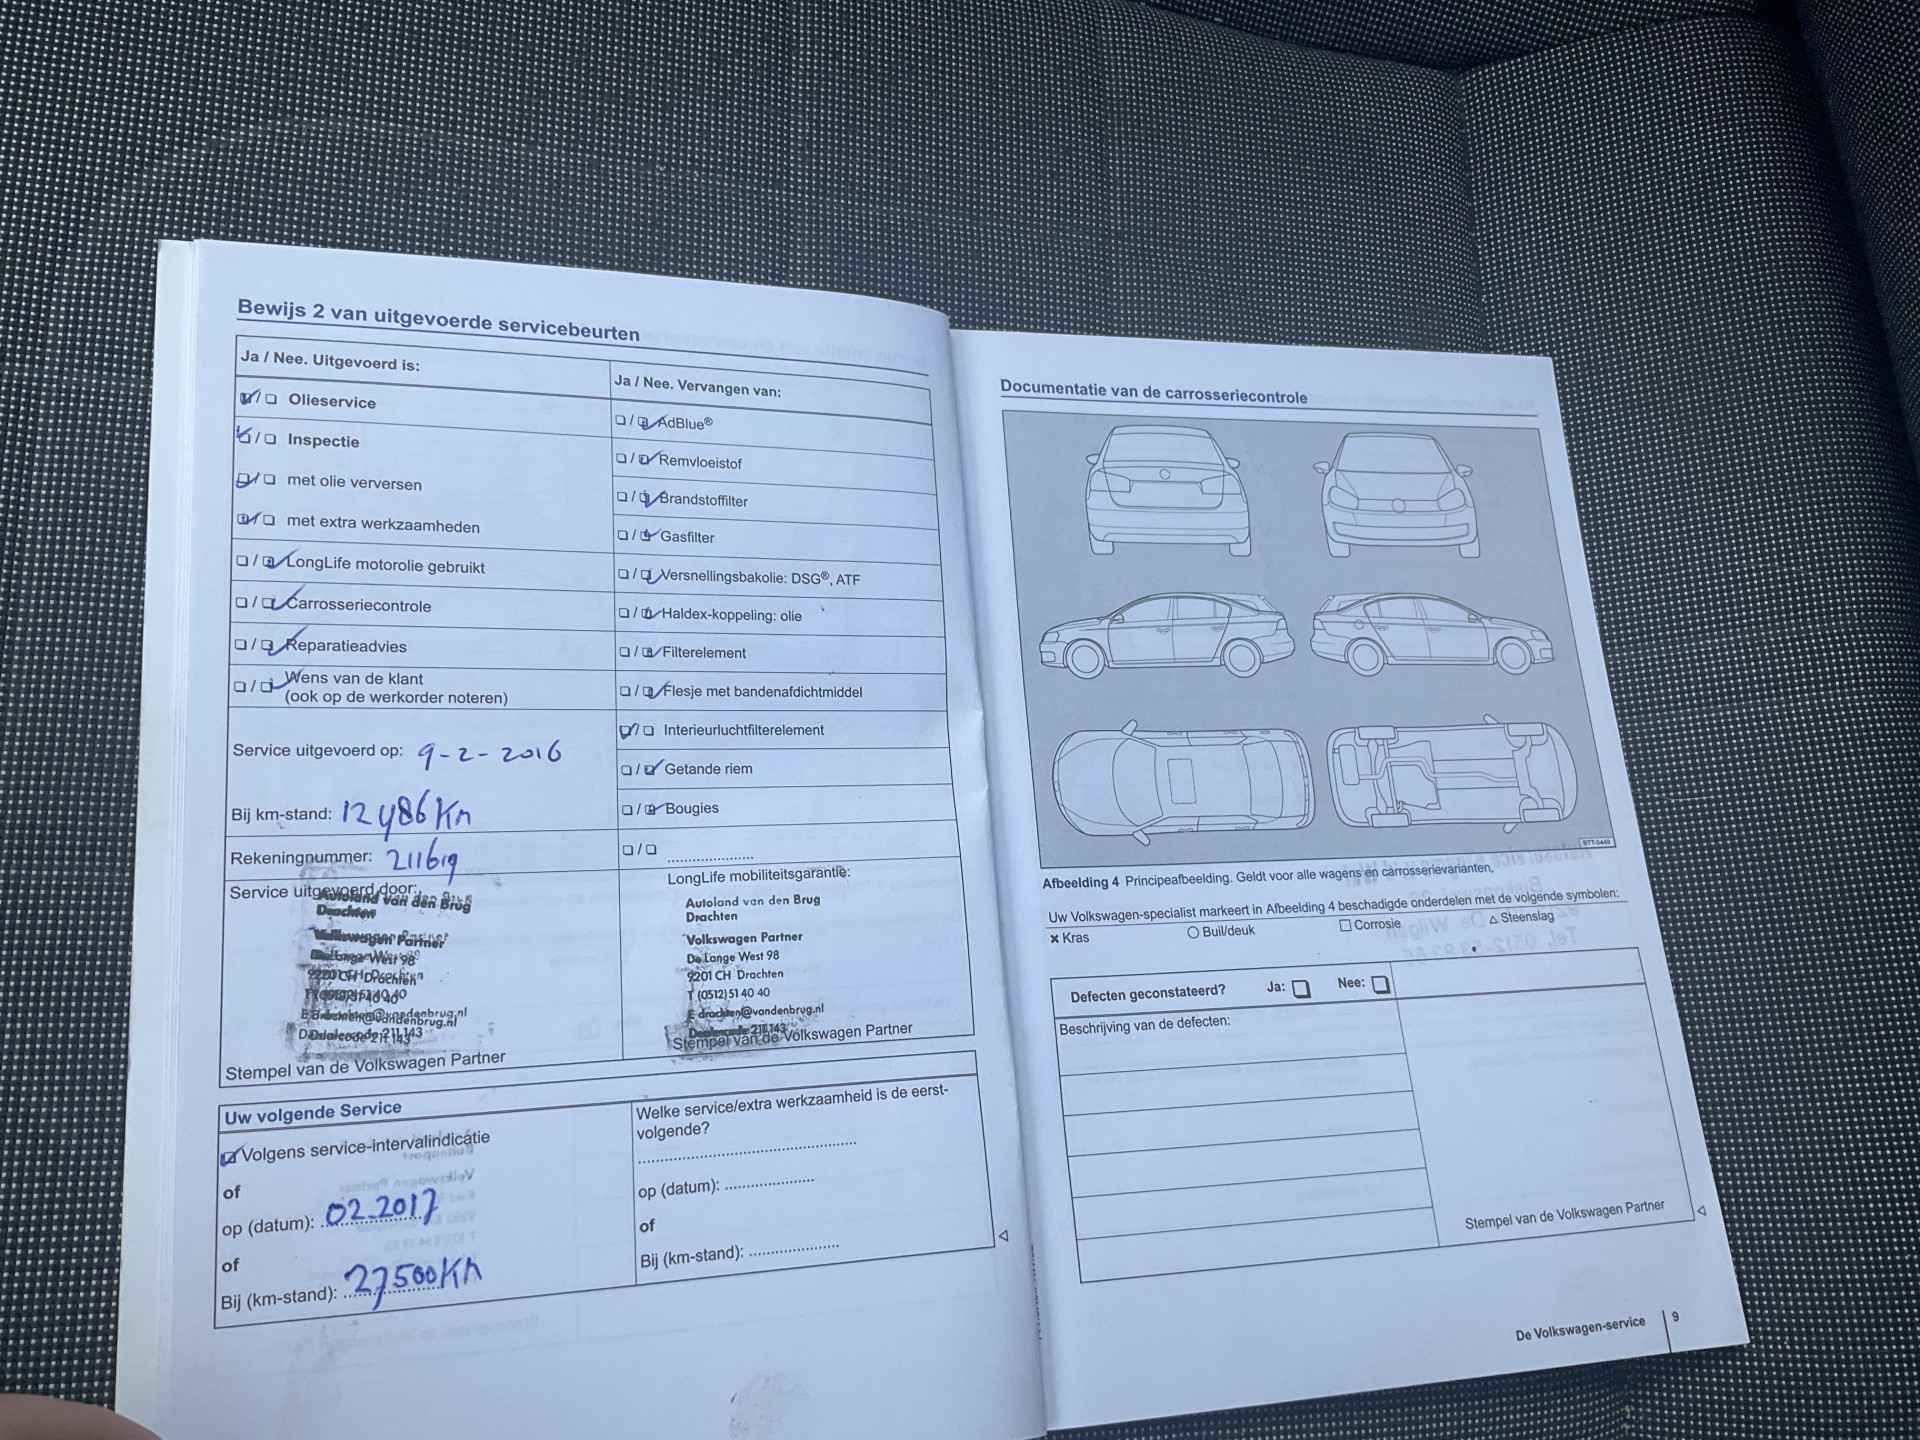 Bewijs 2 van uitgevoerde servicebeurten
Ja / Nee. Uitgevoerd is:
Olieservice
Inspectie
met olie verversen
met extra werkzaamheden
LongLife motorolie gebruikt
Carrosseriecontrole
Reparatieadvies
Wens van de klant
(ook op de werkorder noteren)
Service uitgevoerd op: 9-2-2016
Bij km-stand: 12486 Km
Rekeningnummer: 211619
Service uitgevoerd door:
Autoland van den Brug
Drachten
Volkswagen Partner
De Lange West 98
9201 CH Drachten
T (0512) 51 40 40
E drachten@vandenbrug.nl
Dealercode 211.143
Stempel van de Volkswagen Partner
Ja / Nee. Vervangen van:
AdBlue®
Remvloeistof
Brandstoffilter
Gasfilter
Versnellingsbakolie: DSG®, ATF
Haldex-koppeling: olie
Filterelement
Flesje met bandenafdichtmiddel
Interieurluchtfilterelement
Getande riem
Bougies
LongLife mobiliteitsgarantie:
Autoland van den Brug
Drachten
Volkswagen Partner
De Lange West 98
9201 CH Drachten
T (0512) 51 40 40
E drachten@vandenbrug.nl
Dealercode 211.143
Stempel van de Volkswagen Partner
Uw volgende Service
Volgens service-intervalindicatie
of
op (datum): 02.2017
of
Bij (km-stand): 27500 Km
Welke service/extra werkzaamheid is de eerst-
volgende?
op (datum):
of
Bij (km-stand):
Documentatie van de carrosseriecontrole
Afbeelding 4 Principeafbeelding. Geldt voor alle wagens en carrosserievarianten,
Uw Volkswagen-specialist markeert in Afbeelding 4 beschadigde onderdelen met de volgende symbolen:
Kras Buil/deuk Corrosie Steenslag
Defecten geconstateerd? Ja: Nee:
Beschrijving van de defecten:
Stempel van de Volkswagen Partner
De Volkswagen-service 9